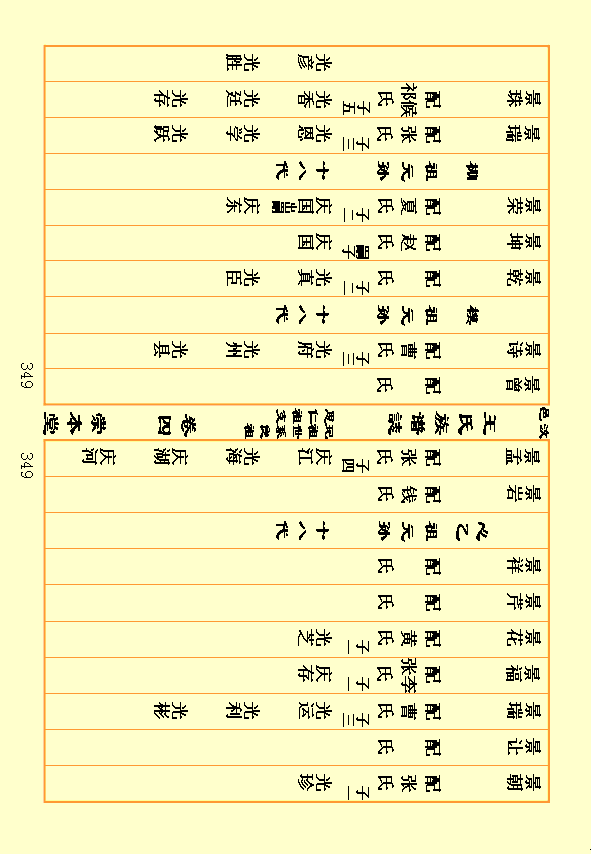 景朝 配张氏 子一 光珍
景让 配 氏
景瑞 配曹氏 子三 光运 光利 光彬
景福 配张李氏 子一 庆存
景花 配黄氏 子一 光芝
景芹 配 氏
景祥 配 氏
祖元孙 十八代
景岩 配钱氏
景孟 配张氏 子四 庆江 光海 庆湖 庆河
349
王氏族譜誌 卷四 崇本堂
景曾 配 氏
349
景诗 配曹氏 子三 光府 光州 光县
祖元孙 十八代
景乾 配 氏 子二 光真 光臣
景坤 配赵氏 嗣子 庆国
景荣 配夏氏 子二 庆国出嗣 庆东
祖元孙 十八代
景瑞 配张氏 子三 光恩 光学 光跃
景珠 配祁候氏 子五 光香 光廷 光存
光彦 光胜